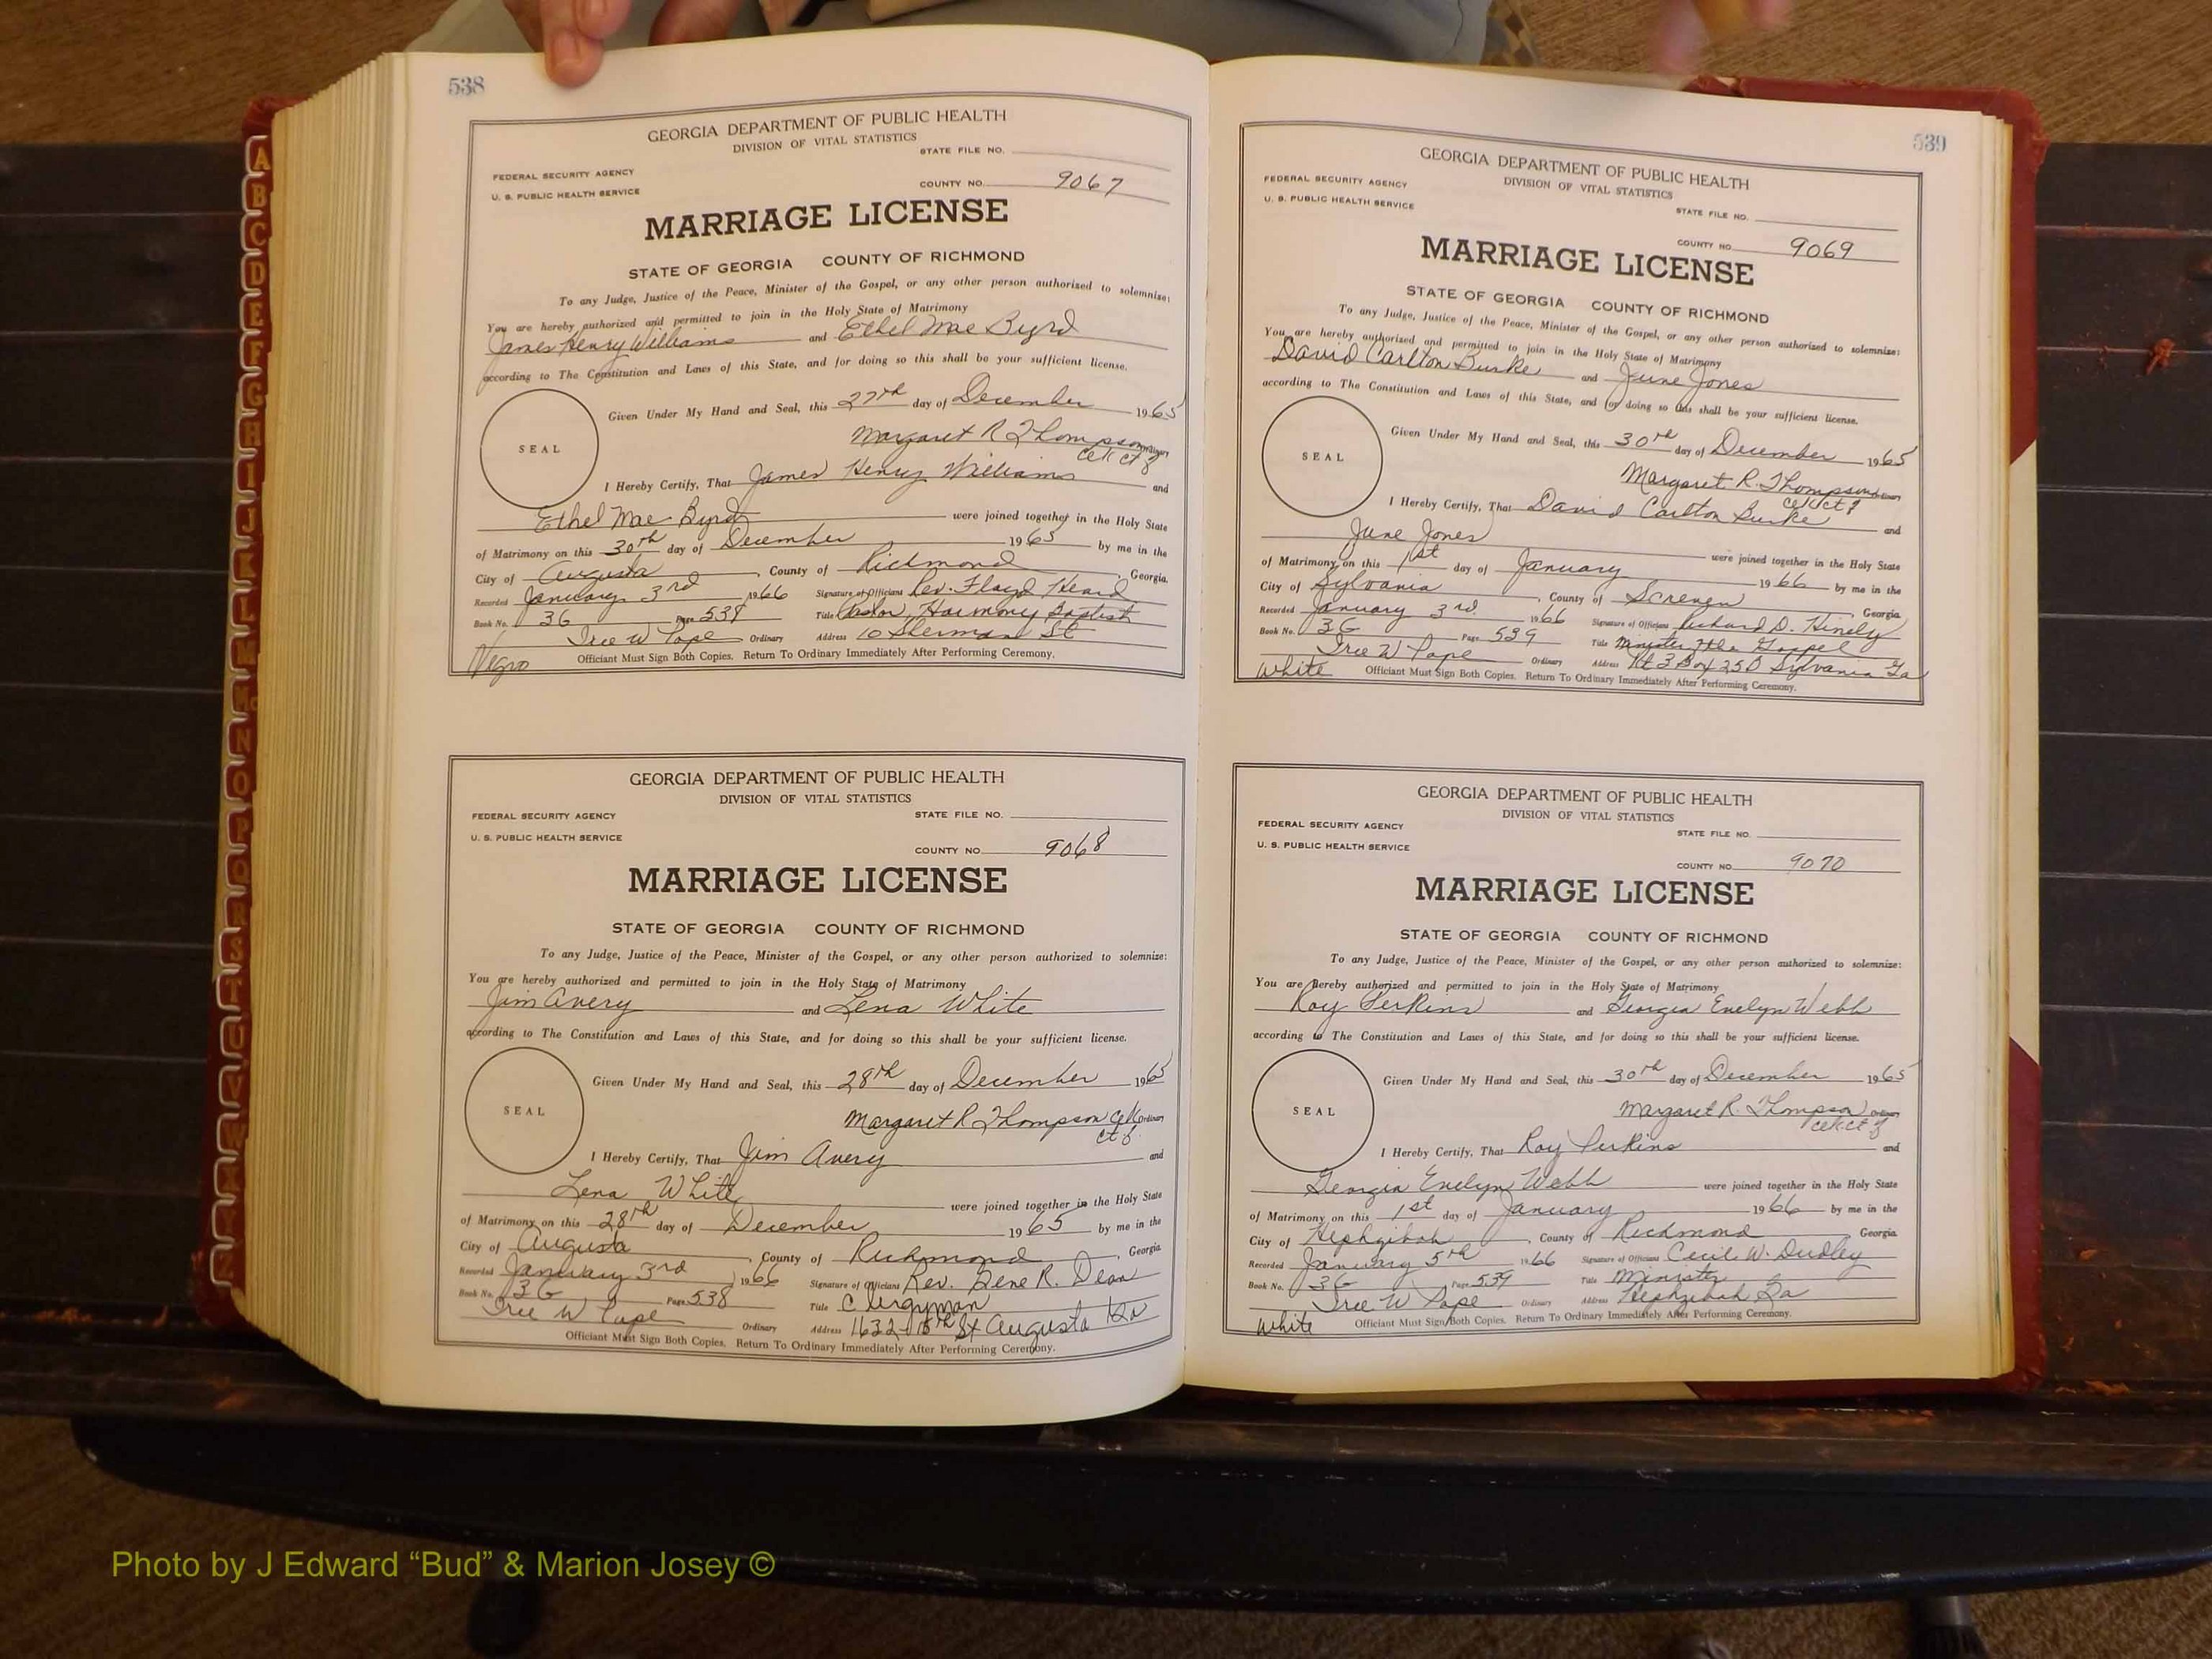 538
GEORGIA DEPARTMENT OF PUBLIC HEALTH
DIVISION OF VITAL STATISTICS
STATE FILE NO.
FEDERAL SECURITY AGENCY
U. S. PUBLIC HEALTH SERVICE
COUNTY NO. 9067
MARRIAGE LICENSE
STATE OF GEORGIA COUNTY OF RICHMOND
To any Judge, Justice of the Peace, Minister of the Gospel, or any other person authorized to solemnize:
You are hereby authorized and permitted to join in the Holy State of Matrimony
James Henry Williams and Ethel Mae Byrd
according to The Constitution and Laws of this State, and for doing so this shall be your sufficient license.
Given Under My Hand and Seal, this 27th day of December 1965
SEAL
Margaret R Thompson Ordinary
I Hereby Certify, That James Henry Williams and
Ethel Mae Byrd were joined together in the Holy State
of Matrimony on this 30th day of December 1965 by me in the
City of Augusta, County of Richmond, Georgia.
Recorded January 3rd 1966 Signature of Officiant Rev. Floyd Heard
Book No. 3G Page 538 Title Pastor, Harmony Baptist
Tree W Pope Ordinary Address 10 Sherman St
Negro Officiant Must Sign Both Copies. Return To Ordinary Immediately After Performing Ceremony.
GEORGIA DEPARTMENT OF PUBLIC HEALTH
DIVISION OF VITAL STATISTICS
FEDERAL SECURITY AGENCY STATE FILE NO.
U. S. PUBLIC HEALTH SERVICE
COUNTY NO. 9068
MARRIAGE LICENSE
STATE OF GEORGIA COUNTY OF RICHMOND
To any Judge, Justice of the Peace, Minister of the Gospel, or any other person authorized to solemnize:
You are hereby authorized and permitted to join in the Holy State of Matrimony
Jim Avery and Lena White
according to The Constitution and Laws of this State, and for doing so this shall be your sufficient license.
Given Under My Hand and Seal, this 28th day of December 1965
SEAL
Margaret R Thompson Ordinary
I Hereby Certify, That Jim Avery and
Lena White were joined together in the Holy State
of Matrimony on this 28th day of December 1965 by me in the
City of Augusta, County of Richmond, Georgia
Recorded January 3rd 1966 Signature of Officiant Rev. Gene R. Dean
Book No. 3G Page 538 Title Clergyman
Tree W Pope Ordinary Address 1632 15th St Augusta Ga
Officiant Must Sign Both Copies. Return To Ordinary Immediately After Performing Ceremony.
539
GEORGIA DEPARTMENT OF PUBLIC HEALTH
DIVISION OF VITAL STATISTICS
FEDERAL SECURITY AGENCY
U. S. PUBLIC HEALTH SERVICE
STATE FILE NO.
COUNTY NO. 9069
MARRIAGE LICENSE
STATE OF GEORGIA COUNTY OF RICHMOND
To any Judge, Justice of the Peace, Minister of the Gospel, or any other person authorized to solemnize:
You are hereby authorized and permitted to join in the Holy State of Matrimony
David Carlton Burke and June Jones
according to The Constitution and Laws of this State, and for doing so this shall be your sufficient license.
Given Under My Hand and Seal, this 30th day of December 1965
SEAL
Margaret R. Thompson Ordinary
I Hereby Certify, That David Carlton Burke and
June Jones were joined together in the Holy State
of Matrimony on this 1st day of January 1966 by me in the
City of Sylvania, County of Screven, Georgia.
Recorded January 3rd. 1966 Signature of Officiant Richard D. Hinely
Book No. 3G Page 539 Title Minister the Gospel
Tree W Pope Ordinary Address Rt 3 Box 250 Sylvania Ga
White Officiant Must Sign Both Copies. Return To Ordinary Immediately After Performing Ceremony.
GEORGIA DEPARTMENT OF PUBLIC HEALTH
DIVISION OF VITAL STATISTICS
FEDERAL SECURITY AGENCY STATE FILE NO.
U. S. PUBLIC HEALTH SERVICE
COUNTY NO. 9070
MARRIAGE LICENSE
STATE OF GEORGIA COUNTY OF RICHMOND
To any Judge, Justice of the Peace, Minister of the Gospel, or any other person authorized to solemnize:
You are hereby authorized and permitted to join in the Holy State of Matrimony
Roy Perkins and Georgia Evelyn Webb
according to The Constitution and Laws of this State, and for doing so this shall be your sufficient license.
Given Under My Hand and Seal, this 30th day of December 1965
SEAL
Margaret R. Thompson Ordinary
I Hereby Certify, That Roy Perkins and
Georgia Evelyn Webb were joined together in the Holy State
of Matrimony on this 1st day of January 1966 by me in the
City of Hephzibah, County of Richmond Georgia.
Recorded January 5th 1966 Signature of Officiant Cecil W. Dudley
Book No. 3G Page 539 Title Minister
Tree W Pope Ordinary Address Hephzibah Ga
White Officiant Must Sign Both Copies. Return To Ordinary Immediately After Performing Ceremony.
A
B
C
D
E
F
G
H
I
J
K
L
M
Mc
N
O
P
Q
R
S
T
U
V
W
X
Y
Z
Photo by J Edward “Bud” & Marion Josey ©